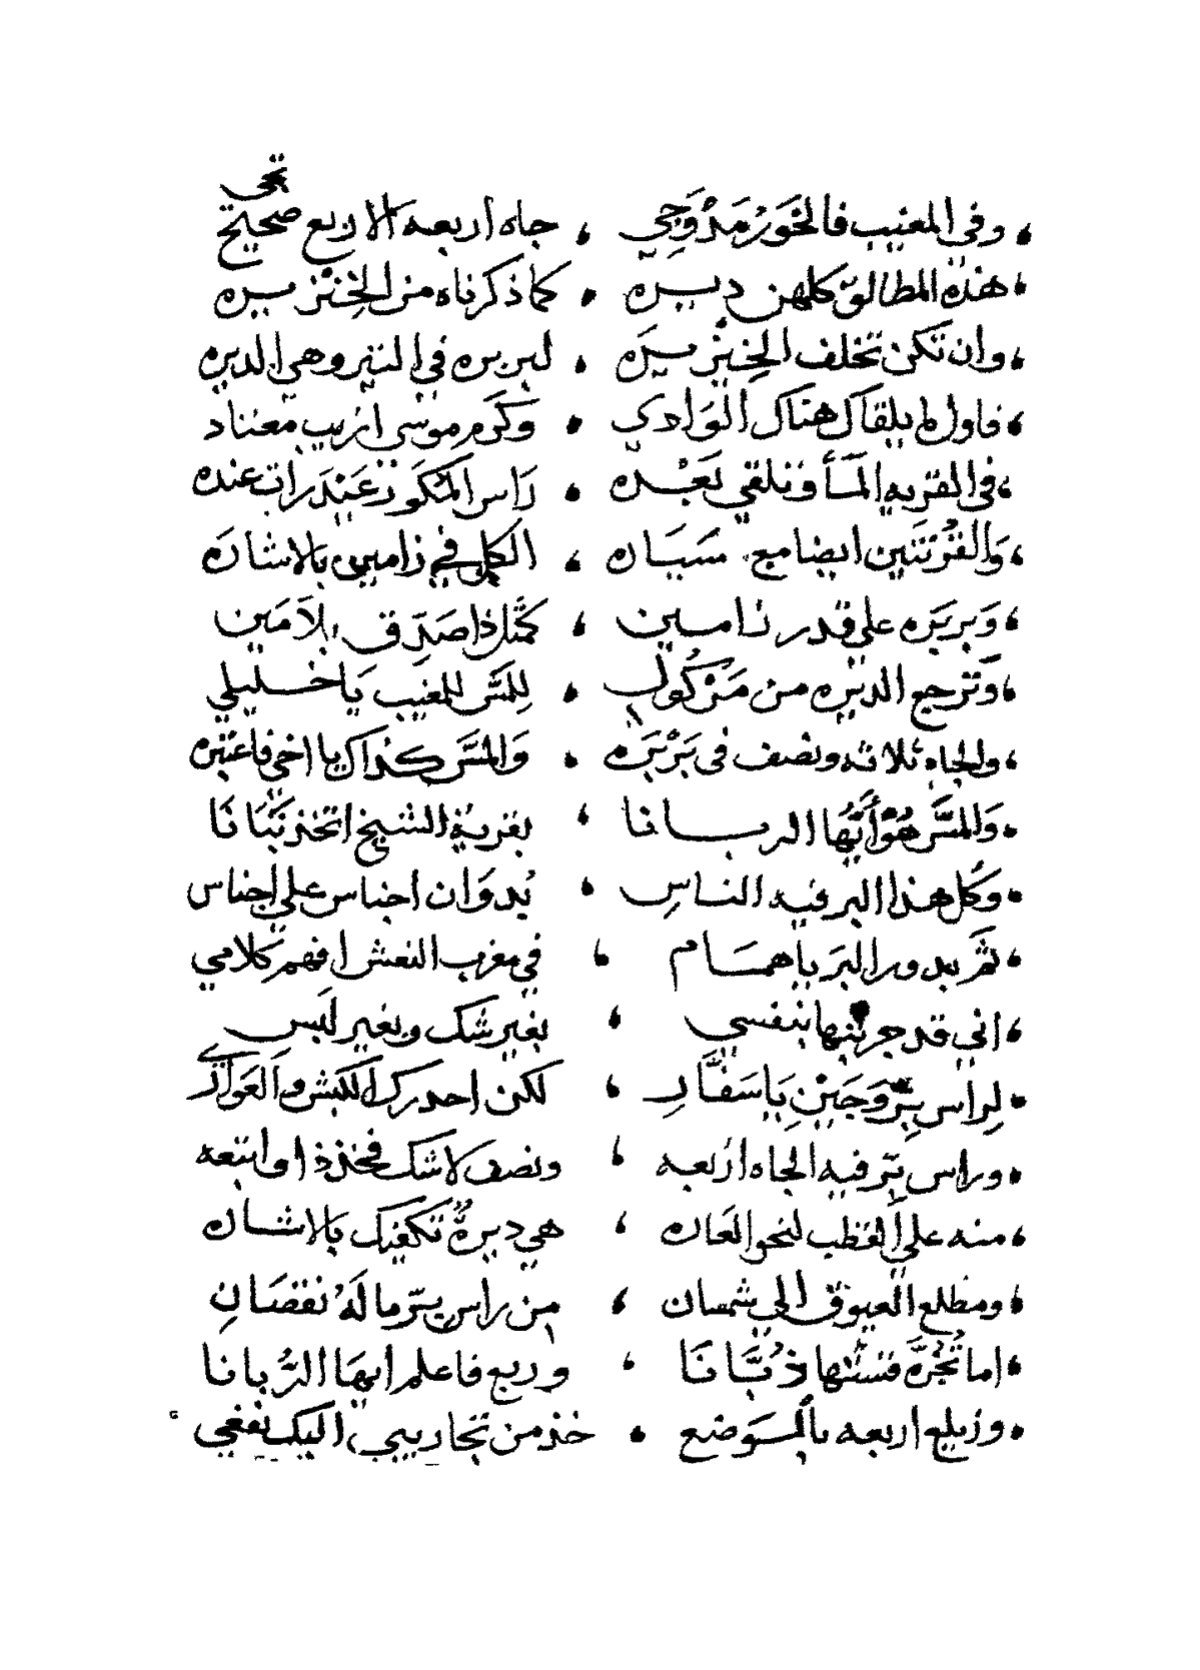 وفي المغيب فالخور مدوجي ، جاه اربعه الاربع صحيح تجي
هذه المطالق كلهن ديره ، كما ذكرناه من الخنزيره
وان تكن تخلف الخنزيره ، لبربره في التير وهي الديره
فاول ما يلقاك هناك الوادي ، وكرم موسى ازيب معتاد
في القريه وتلقي بعده ، راس عنده
والقرتين ايضا مع سياره ، الكل في زامين بالاشاره
وبربره على قدر زامين ، كمثل ذا صدق بلا مين
وترجع الديره من مركول ، للمس للمغيب يا خليلي
والجاه ثلاثه ونصف في بربره ، والمس كذاك يا اخي فاعتبره
والمس هو أيها الربانا ، بقرية الشيخ اتخذ بتانا
وكل هذا البر فيه الناس ، بدوان اجناس على اجناس
ثم يدور البر يا همام ، في مغرب النعش افهم كلامي
اني قد جربتها بنفسي ، بغير شك وبغير لبس
لراس بتروجين يا سفار ، لكن احدرك الكبش والعواري
وراس بتر فيه الجاه اربعه ، ونصف لا شك فخذ ذا واتبعه
منه على القطب لنحو العاره ، هي ديرة تكفيك بالاشاره
ومطلع العيوق الى شمسان ، من راس بتر ما له نقصان
اما تجره فستها ذبانا ، وربع فاعلم ايها الربانا
وزيلع اربعه بالموضع ، خذ من تجاريبي اليك نفعي